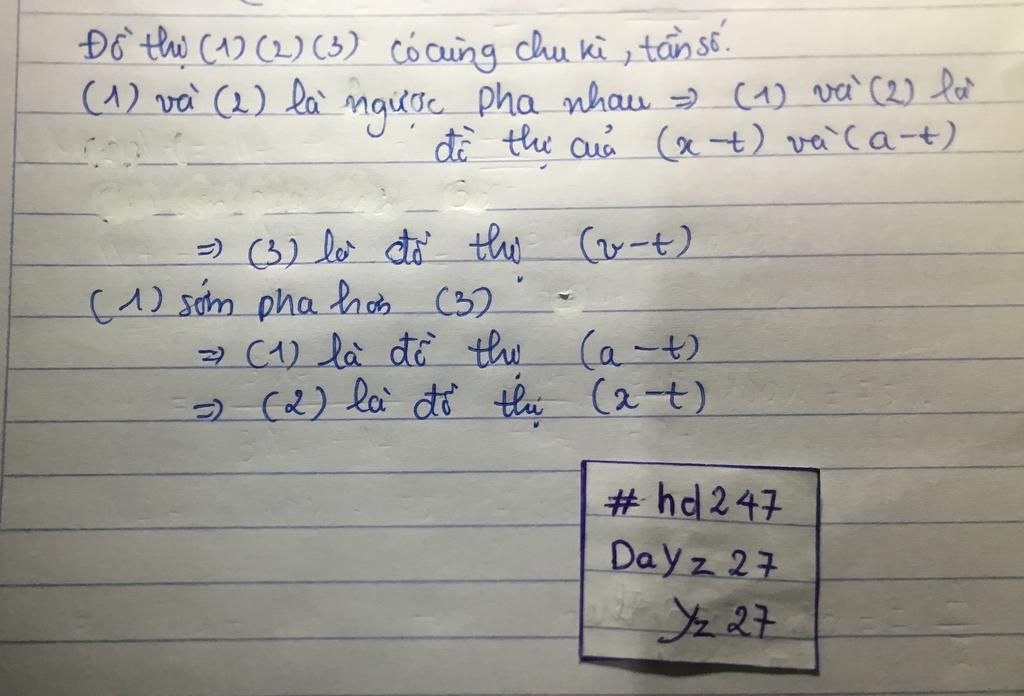 Đồ thị (1) (2) (3) có cùng chu kì, tần số.
(1) và (2) là ngược pha nhau => (1) và (2) là
đồ thị của (x-t) và (a-t)
=> (3) là đồ thị (v-t)
(1) sớm pha hơn (3)
=> (1) là đồ thị (a-t)
=> (2) là đồ thị (x-t)
# hd247
Dayz 27
Yz 27